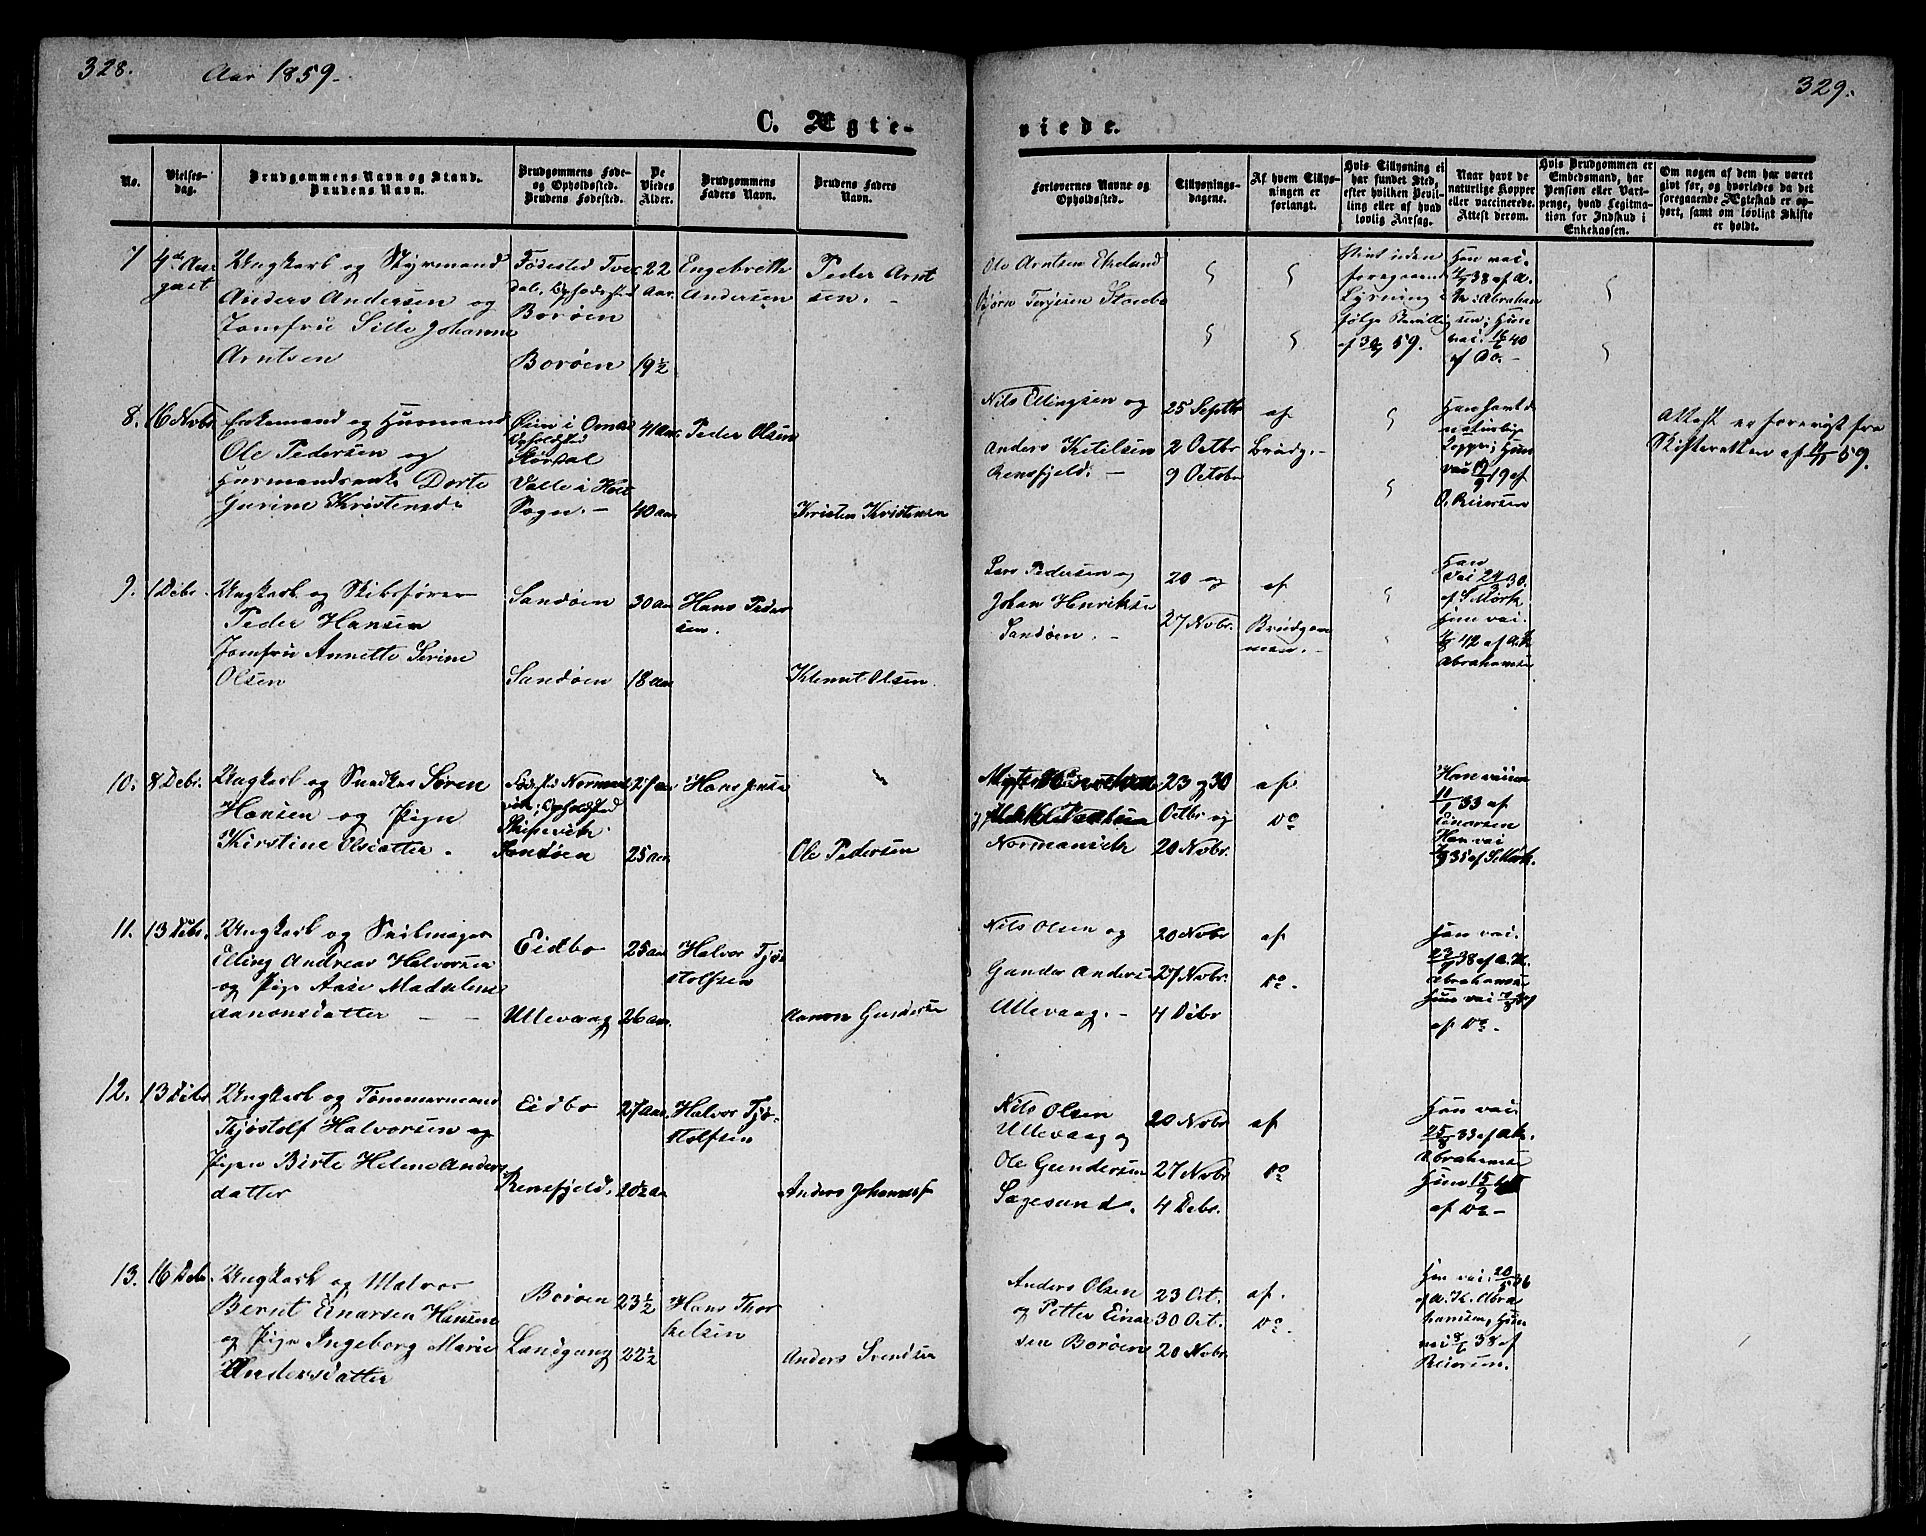 328.
Aar 1859.
C. Ægte-
No.
Vielses-
dag.
Brudgommens Navn og Stand.
Brudens Navn.
Brudgommens Føde-
og Opholdssted.
Brudens Fødested.
De
Viedes
Alder.
Brudgommens
Faders Navn.
Brudens Faders
Navn.
7
4de Au
gust
Ungkarl og Styrmand
Anders Andersen og
Jomfru Sille Johanne
Arntsen
Fødested Tve
dale, Opholdssted
Borøen
Borøen
22
Aar.
19½
Engebreth
Andersen
Peder Arnt
sen.
8.
16 Nobr
Enkemand og Husmand
Ole Pedersen og
Husmandsenke Dorte
Gurine Kristensd.
Opholdsted
Valle i Holt
Sogn. -
41 Aar
40 aar
Peder Olsen
Kristen Kristensen
9.
1 Debr.
Ungkarl og Skibsfører
Peder Hansen
Jomfru Annette Serine
Olsen
Sandøen
Sandøen
30 aar
18 aar
Hans Peder
sen.
Klemet Olsen.
10.
8 Debr.
Ungkarl og Snedker Søren
Hansen og Pige
Kirstine Olsdatter.
Fødested Norman
vik, Opholdsted
Skipevik
Sandøen
27 aar
25 aar
Hans Jensen
Ole Pedersen
11.
13 Debr.
Ungkarl og Seilmager
Elling Andreas Halvorsen
og Pige Aase Madalene
Aanonsdatter - -
Eidbo
Ullevaag
25 aar
26 aar
Halvor Tjø
stolfsen
Aanon Gundersen
12.
13 Debr
Ungkarl og Tømmermand
Thjøstolf Halvorsen og
Pigen Birte Helene Anders
datter
Eidbo
Rensfjeld.
27 aar
20½ aar
Halvor Tjø-
stolfsen
Anders Johannesf
13.
16 Debr.
Ungkarl og Matros
Bernt Einarsen Hansen
og Pige Ingeborg Marie
Andersdatter
Borøen
Landgang
23½
22½
Hans Thor
kelsen
Anders Svendsen
329.
viede.
Forlovernes Navne og
Opholdssted.
Tillysnings-
dagene.
Af hvem Tillys-
ningen er
forlangt.
Hvis Tillysning ei
har fundet Sted,
efter hvilken Bevil-
ling eller af hvad
lovlig Aarsag.
Naar havt de
naturlige Kopper
eller vaccinerede.
Attest derom.
Hvis Brudgommen er
Embedsmand, har
Pension eller Vart-
penge, hvad Legitima-
tion for Indskud i
Enkekassen.
Om nogen af dem har været
gift før, og hvorledes da det
foregaaende Ægteskab er op-
hørt, samt om lovligt Skifte
er holdt.
Ole Arntsen Ekeland
Bjørn Terjesen
uden
foregaaende
Lysning i
følge Bevilling
af 59.
Han vai.
38 af A.
K. Abraham
sen; Hun
vai. 16/6 40
af Do. -
Nils Ellingsen og
Anders Ketilsen
Rensfjeld. -
25 Septbr
2 Octbr
9 Octobr
af
Brudg. -
Han havt de
naturlige
Kopper; Hun
vai 17/9 19 af
O. Reiersen
Attest er foreviist fra
Skifteretten af 59.
Lars Pedersen og
Johan Henriksen
Sandøen. -
20 og
27 Nobr.
af
Brudgom
men. -
Han
vai 24/9 30.
af S. Mørk
Hun vai.
42 af A.K.
Abrahamsen
Normanvik
23 og 30
Octbr og
20 Nobr.
af
Do
Han vaiin
11/1 33 af
Einersen
Hun vai
35 af S. Mørk.
Nils Olsen og
Gunder Andersen
Ullevaag. -
20 Nobr
27 Nobr.
4 Debr
af
Do.
Han vai.
38 af A.K.
Abrahamsen
Hun vai
af Do -
Nils Olsen
Ullevaag og
Ole Gundersen
Sagesund.
20 Nobr
27 Nobr
4 Debr.
af
Do
Han vai.
25/8 33 af A.K.
Abrahamsen
Hun 15/9
af Do -
Anders Olsen
og Petter Einar
sen Borøen
23 Oct.
30 Oct.
20 Nobr.
af.
Do.
Han vai. 20/5 36
af A. K. Abra
hamsen, Hun
vai 8/6 38 af
Reiersen.